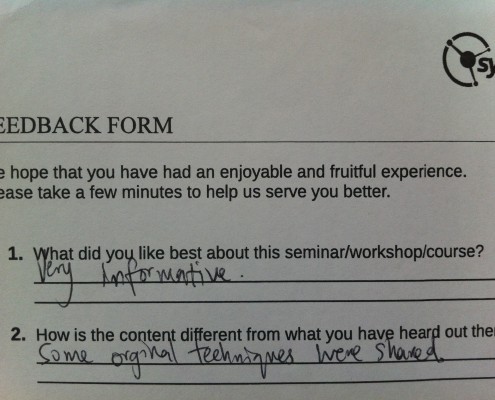 sy
EEDBACK FORM
e hope that you have had an enjoyable and fruitful experience.
ease take a few minutes to help us serve you better.
1. What did you like best about this seminar/workshop/course?
Very Informative.
2. How is the content different from what you have heard out ther
Some orginal techniques were shared.